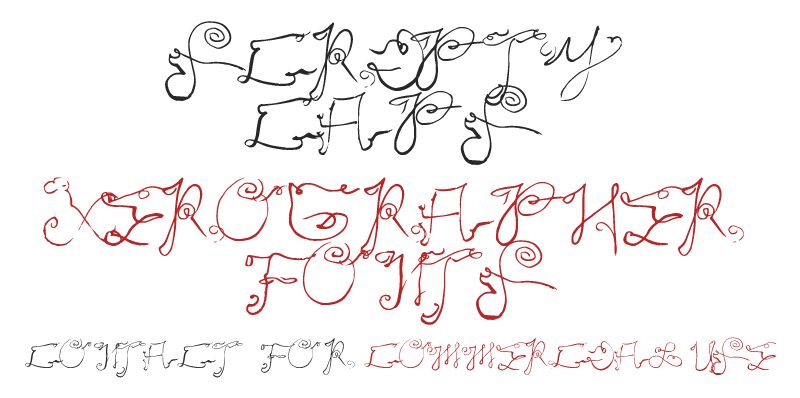 SCRIPTY
CAPS
XEROGRAPHER
FONTS
CONTACT FOR COMMERCIAL USE